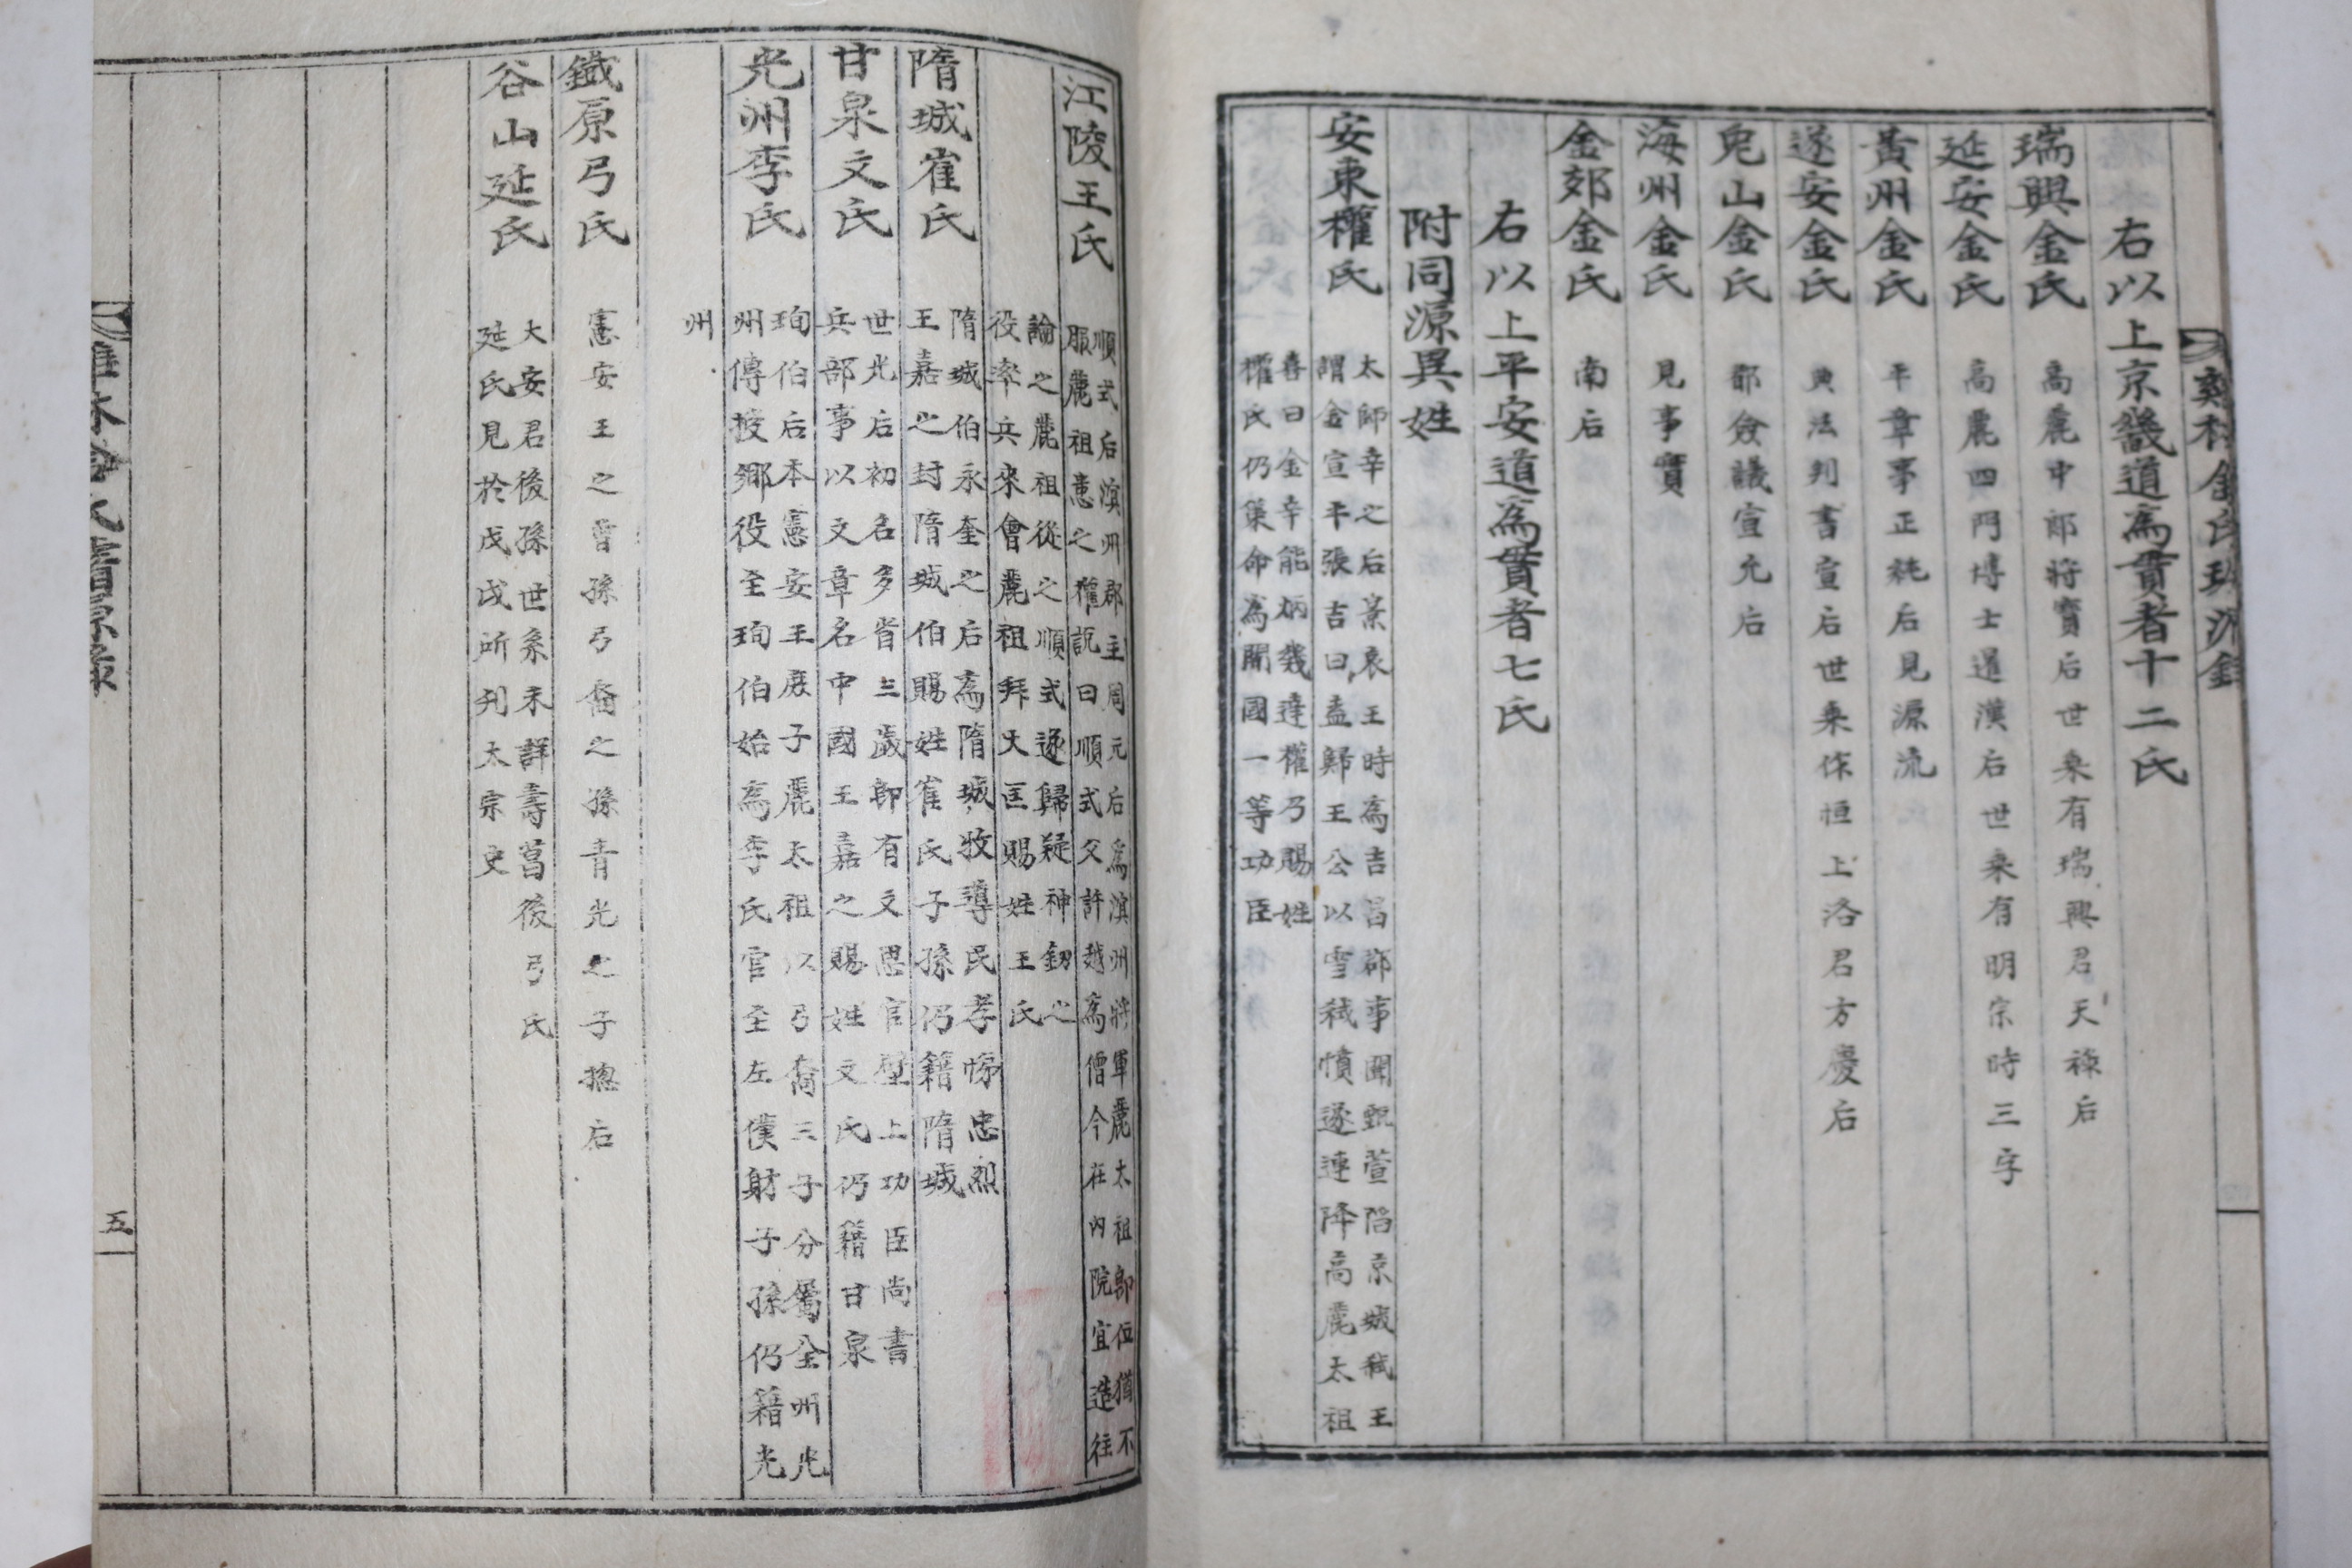 右以上京畿道為貫者十二氏
瑞興金氏 高麗中郎將寶后世乘有瑞興君天祿后
延安金氏 高麗四門博士暹漢后世乘有明宗時三字
黃州金氏 平章事正純后見源流
遂安金氏 典法判書宣后世乘作恒上洛君方慶后
兔山金氏 都僉議宣允后
海州金氏 見事實
金郊金氏 南后
右以上平安道為貫者七氏
附同源異姓
安東權氏 太師幸之后景哀王時為吉昌郡事聞甄萱陷京城弒王
謂金宣平張吉曰盍歸王公以雪弒憤遂連降高麗太祖
喜曰金幸能炳幾達權乃賜姓
權氏仍策命為開國一等功臣
江陵王氏 順式后溟州郡主周元后為溟州將軍麗太祖即位猶不
服麗祖患之權說曰順式父許越為僧今在內院宜造往
諭之麗祖從之順式遂歸疑神劒之
役率兵來會麗祖拜大匡賜姓王氏
隋城崔氏 隋城伯永奎之后為隋城牧導民孝悌忠烈
王嘉之封隋城伯賜姓崔氏子孫仍籍隋城
甘泉文氏 世光后初名多省三歲即有文思官壁上功臣尚書
兵部事以文章名中國王嘉之賜姓文氏仍籍甘泉
光州李氏 珣伯后本憲安王庶子麗太祖以弓裔三子分屬全州光
州傳授鄉役至珣伯始為李氏官至左僕射子孫仍籍光
州
鐵原弓氏 憲安王之曾孫弓裔之孫青光之子摠后
谷山延氏 大安君後孫世系未詳壽菖後弓氏
延氏見於戊戌所刋太宗史
五